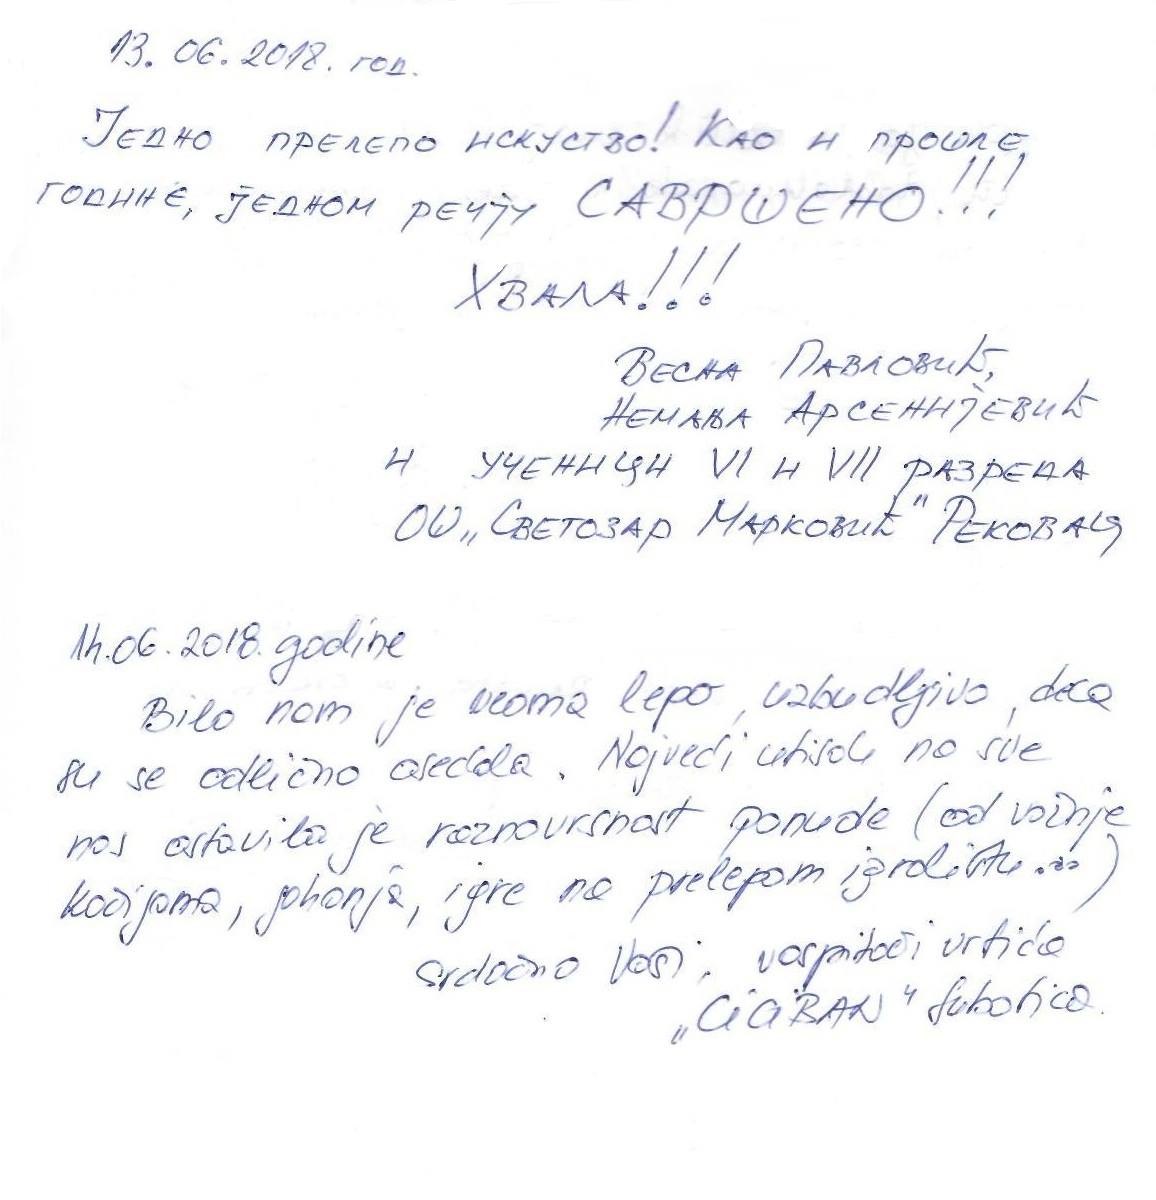 13. 06. 2018. год.
Једно прелепо искуство! Као и прошле
године, једном речју САВРШЕНО!!!
Хвала!!!
Весна Павловић,
Немања Арсенијевић
и ученици VI и VII разреда
ОШ „Светозар Марковић" Рековац
14.06.2018. godine
Bilo nam je veoma lepo, uzbudljivo, deca
su se odlično osećala. Najveći utisak na sve
nas ostavila je raznovrsnost ponude (od vožnje
kočijama, jahanja, igre na prelepom igralištu...)
Srdačno Vaši, vaspitači vrtića
„CICIBAN" Subotica.